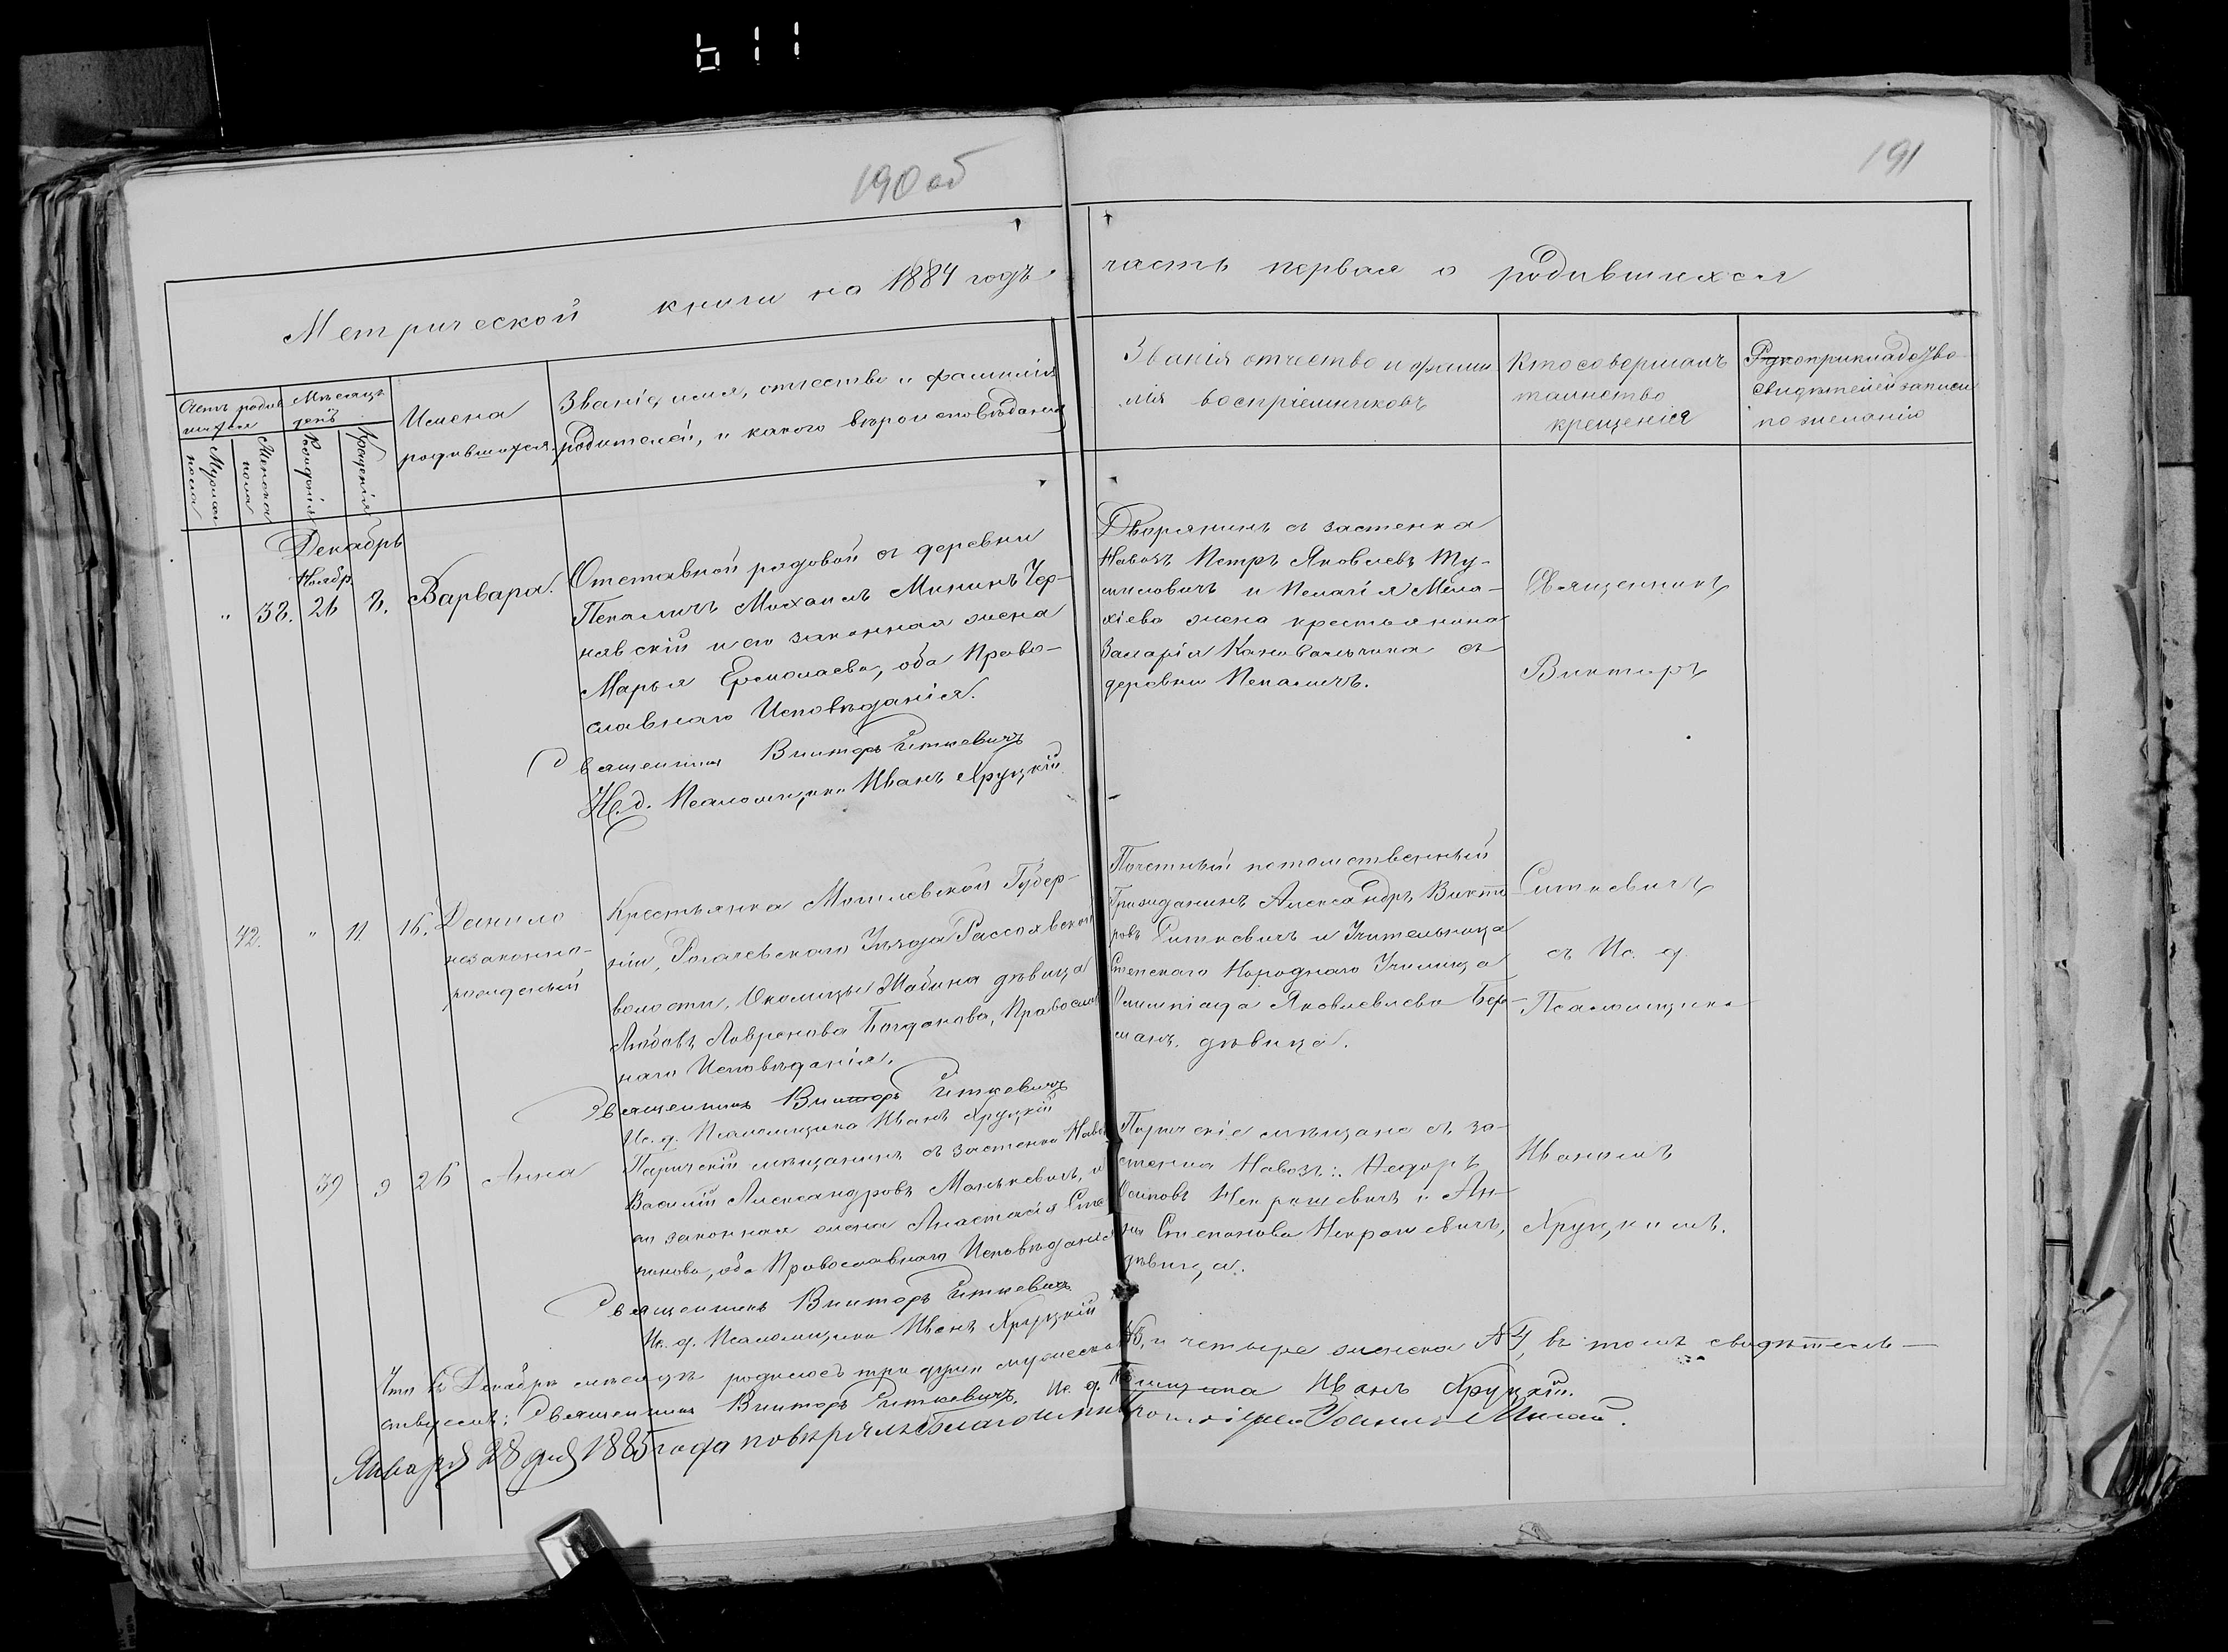 190 об
191
Метрической книги на 1884 годъ
часть первая о родившихся
Счетъ родив
шихся
Мужска
пола
Женска
пола
Мѣсяцъ
день
Рожденія
Крещенія
Имена
родившихся.
Званіе, имя, отчество и фамилія
родителей, и какого вѣроисповѣданія
Званія отчество и фами
лія воспріемниковъ
Кто совершалъ
таинство
крещенія
Рукоприкладство
свидѣтелей записи
по желанію
Декабрь
Ноябр.
" 38. 26 8. Варвара.
Отставной рядовой съ деревни
Пекаличъ Михаилъ Мининъ Чер-
нявскій и его законная жена
Марья Ермолаева, оба Право-
славнаго Исповѣданія.
Священникъ Викторъ Ситкевичъ
И. д. Псаломщика Иванъ Хруцкій
Дворянинъ съ застенка
Навозъ Петръ Яковлевъ Ту-
миловичъ и Пелагія Мела-
хіева жена крестьянина
Захарія Кановальчика съ
деревни Пекаличъ.
Священникъ
Викторъ
42. " 11. 16. Данило
незаконно-
рожденный
Крестьянка Могилевской Губер-
ніи, Рогачевскаго Уѣзда Рассохской
волости, Околицы Шабина дѣвица
Любовь Лавренова Богданова, Православ
наго Исповѣданія.
Священникъ Викторъ Ситкевичъ
Ис. д. Псаломщика Иванъ Хруцкій
Почетный потомственный
Гражданинъ Александръ Викто
ровъ Ситкевичъ и Учительница
Степскаго Народнаго Училища
Олимпіада Яковлевлева Бер-
манъ. дѣвица.
Ситкевичъ
съ Ис. д.
Псаломщика
39 9 26 Анна
Паричскій мѣщанинъ съ застенка Навоз
Василій Александровъ Манькевичъ, и
его законная жена Анастасія Сте
панова, оба Православнаго Исповѣданія
Священникъ Викторъ Ситкевичъ
Ис. д. Псаломщика Иванъ Хруцкій
Паричскіе мѣщане съ за-
стенка Навозъ: Федоръ
Осиповъ Некрашевичъ и Ан-
на Степанова Некрашевичъ,
дѣвица.
Иваномъ
Хруцкимъ.
Что въ Декабрѣ мѣсяцѣ родилось три души мужеска и четыре женска № 4, въ томъ свидѣтель-
ствуемъ: Священникъ Викторъ Ситкевичъ. Ис. д. Иванъ Хруцкій.
Января 28 дня 1885 года повѣрялъ Благочинный